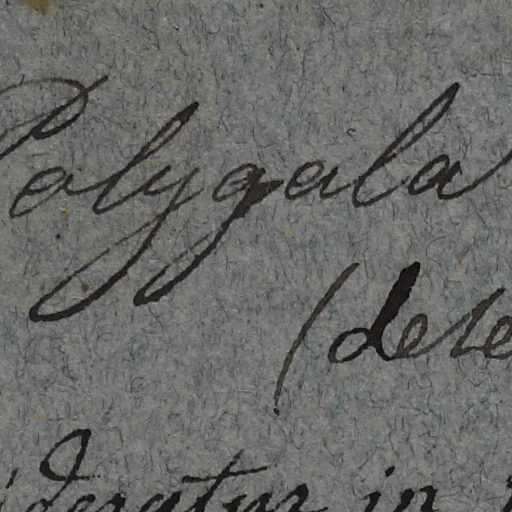 Polygala
(dele
ideratur in